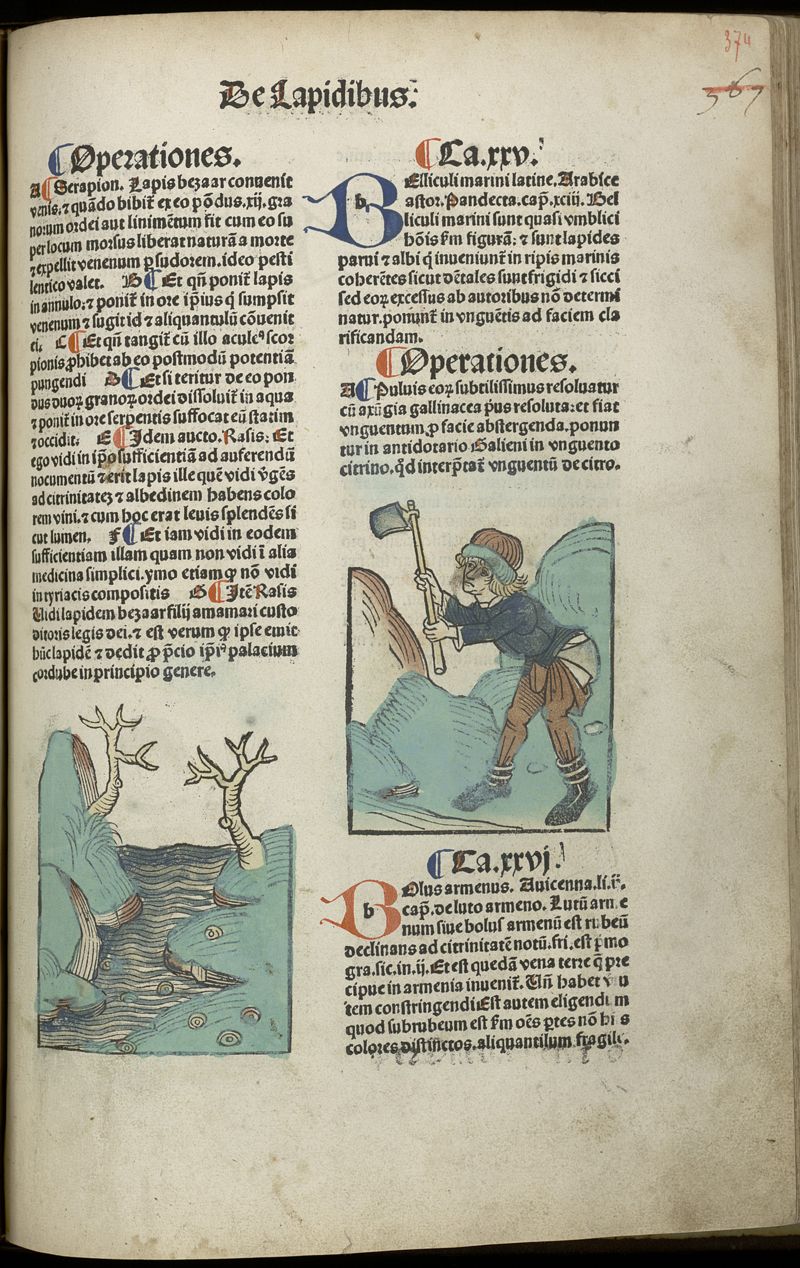 De Lapidibus.
374
567
¶Operationes.
A¶Serapion. Lapis bezaar conuenit
venis. ⁊ quãdo bibit̃ ex eo põdus .xij. gra
norum ordei aut linimẽtum fit cum eo su
per locum morsus liberat naturã a morte
⁊ expellit venenum ꝑ sudorem. ideo pesti
lentico valet. B¶Et qñ ponit̃ lapis
in annulo: ⁊ ponit̃ in ore ip̃ius q̃ sumpsit
venenum ⁊ sugit id ⁊ aliquantulũ cõuenit
ei. C¶Et qñ tangit̃ cũ illo acule⁹ scor
pionis ꝓhibet ab eo postmodũ potentiã
pungendi D¶Et si teritur de eo pon
dus duoꝝ granoꝝ ordei dissoluit̃ in aqua
⁊ ponit̃ in ore serpentis suffocat eũ statim
⁊ occidit. E¶Idem aucto. Rasis. Et
ego vidi in ip̃o sufficientiã ad auferendũ
nocumentũ ⁊ erit lapis ille quẽ vidi ṽgẽs
ad citrinitatẽ ⁊ albedinem habens colo
rem vini. ⁊ cum hoc erat leuis splendẽs si
cut lumen. F¶Et iam vidi in eodem
sufficientiam illam quam non vidi ĩ alia
medicina simplici. ymo etiam ꝙ nõ vidi
in tyriacis compositis G¶Itẽ Rasis
Vidi lapidem bezaar filij amamari custo
ditoris legis dei. ⁊ est verum ꝙ ipse emit
hũc lapidẽ ⁊ dedit ꝓ p̃cio ip̃i⁹ palacium
cordube in principio genere.
¶Ca.xxv.
BElliculi marini latine. Arabice
astor. Pandecta. cap̃. xciij. Bel
liculi marini sunt quasi vmblici
hõis s̃m figurã: ⁊ sunt lapides
parui ⁊ albi q̃ inueniunt̃ in ripis marinis
coherẽtes sicut dẽtales sunt frigidi ⁊ sicci
sed eoꝝ excessus ab autoribus nõ determi
natur. ponunt̃ in vnguẽtis ad faciem cla
rificandam.
¶Operationes.
A¶Puluis eoꝝ subtilissimus resoluatur
cũ axũgia gallinacea p̃us resoluta: et fiat
vnguentum ꝓ facie abstergenda. ponun
tur in antidotario Galieni in vnguento
citrino. q̃d interp̃tat̃ vnguentũ de citro.
¶Ca.xxvj.
BOlus armenus. Auicenna. li. ij.
cap̃. de luto armeno. Lutũ arm e
num siue bolus armenũ est rubeũ
declinans ad citrinitatẽ notũ. fri. est p̃mo
gra. sic. in. ij. Et est quedã vena terre q̃ pre
cipue in armenia inuenit̃. Vñ habet v u
tem constringendi Est autem eligendum
quod subrubeum est s̃m oẽs ꝑtes nõ h s
colores distinctos. aliquantulum fragile.